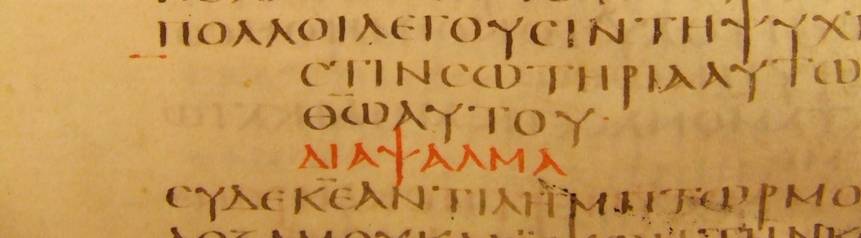 ΠΟΛΛΟΙΛΕΓΟΥϹΙΝΤΗΨΥΧ
ϹΤΙΝϹΩΤΗΡΙΑΑΥΤΩ
Θ̅Ω̅ΑΥΤΟΥ
ΔΙΑΨΑΛΜΑ
ϹΥΔΕΚ̅Ε̅ΑΝΤΙΛΗΜΠΤΩΡΜΟ